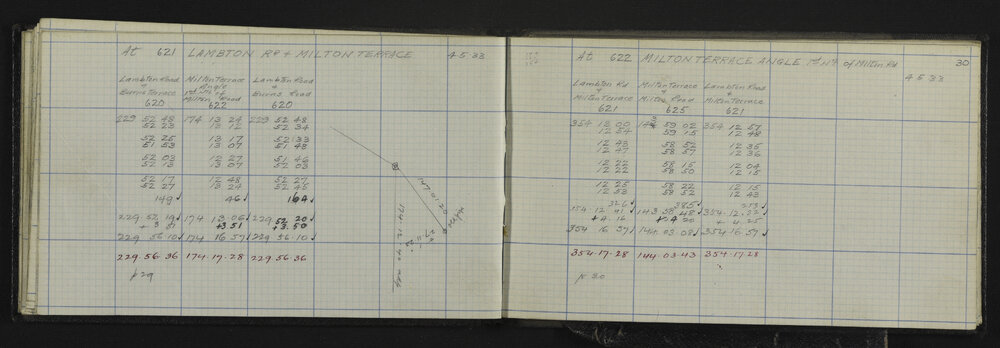 At 621 LAMBTON RD + MILTON TERRACE 4-5-33
Lambton Road Milton Terrace Lambton Road
+ Angle +
Burns Terrace 1st Nth of Burns Road
620 Milton Road 622 620
229 52 48 174 13 24 229 52 48
52 23 13 12 52 34
52 25 13 17 52 33
51 53 13 07 51 48
52 03 12 27 51 46
52 13 13 07 52 03
52 17 12 48 52 27
52 27 13 24 52 45
149 46 164
229 52 19 174 13-06 229 52 20
+3 51 +3.50
229 56-10 174 16 57 229 56-10
229-56-36 174-17-28 229-56-36
p29
147 01 20
30
At 622 MILTON TERRACE ANGLE 1st Nth of Milton Rd
4-5-33
Lambton Rd Milton Terrace Lambton Road
+ + +
Milton Terrace Milton Road Milton Terrace
621 625 621
354 13 00 59 02 354 12 57
12 54 59 15 12 48
12 43 58 52 12 35
12 47 58 57 12 36
12 22 58 15 12 04
12 22 58 50 12 15
12 25 58 22 12 15
12 53 58 52 12 43
326 385 213
354-12-41 143 58 48 354-12-22
+4 16 +4 20 +4 25
354 16 57 144 03 08 354-16-57
354-17-28 144-03-43 354-17-28
p 30